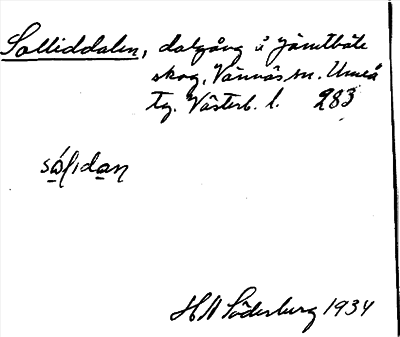 Solliddalen, dalgång å Jämtböle
skog, Vännäs sn. Umeå
tg. Västerb. l. 283
sål̡idan
H N Söderburg 1934